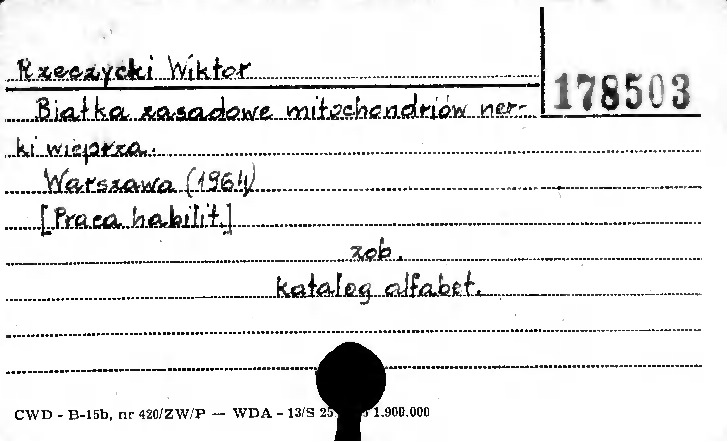 Rzeczycki Wiktor
178503
Białka zasadowe mitochondriów ner-
ki wieprza.
Warszawa (1964)
[Praca habilit.]
zob.
katalog alfabet.
CWD - B-15b, nr 420/ZW/P — WDA - 13/S 25 1.900.000